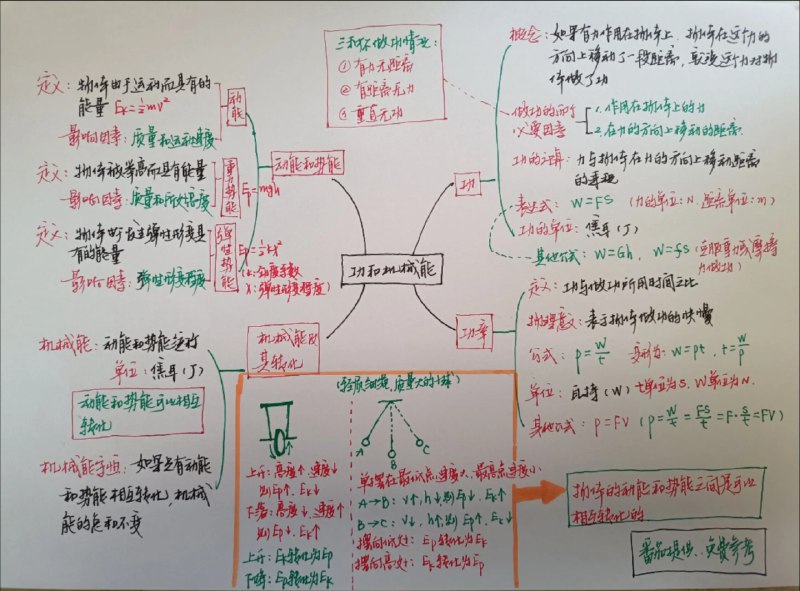 功和机械能
功
概念：如果有力作用在物体上，物体在这个力的
方向上移动了一段距离，就说这个力对物
体做了功
做功的两个
必要因素
1.作用在物体上的力
2.在力的方向上移动的距离.
功的计算：力与物体在力的方向上移动距离
的乘积
表达式：W=FS （力的单位：N. 距离单位：m）
功的单位：焦耳（J）
其他公式：W=Gh， W=fS（克服重力或摩擦
力做功）
三种不做功情况：
①有力无距离
②有距离无力
③垂直无功
功率
定义：功与做功所用时间之比
物理意义：表示物体做功的快慢
公式：P=W/t 变形为：W=Pt，t=W/P
单位：瓦特（W）t单位为s. W单位为N.
其他公式：P=FV（P=W/t=FS/t=F·S/t=FV）
动能和势能
动能
定义：物体由于运动而具有的
能量 Ek=½mv²
影响因素：质量和运动速度
重力势能
Ep=mgh
定义：物体被举高而具有能量
影响因素：质量和所处高度
弹性势能
Ep=½kx²
(k：劲度系数
x：弹性形变程度)
定义：物体由于发生弹性形变具
有的能量
影响因素：弹性形变程度
机械能及
其转化
机械能：动能和势能统称
单位：焦耳（J）
动能和势能可以相互
转化
机械能守恒：如果只有动能
和势能相互转化，机械
能的总和不变
（轻质细绳，质量大的小球）
A
B
C
上升：高度↑，速度↓
则Ep↑. Ek↓
下落：高度↓，速度↑
则Ep↓. Ek↑
上升：Ek转化为Ep
下降：Ep转化为Ek
单摆在最低点速度大、最高点速度小
A→B：V↑，h↓则Ep↓. Ek↑
B→C：V↓，h↑则Ep↑. Ek↓
摆向低处：Ep转化为Ek
摆向高处：Ek转化为Ep
物体的动能和势能之间是可以
相互转化的
番茄提供，免费参考